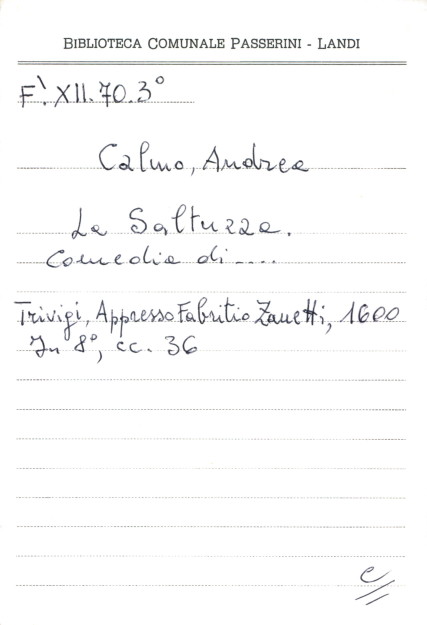 BIBLIOTECA COMUNALE PASSERINI - LANDI
F`. XII. 70. 3°
Calmo, Andrea
La Saltuzza.
Comedia di....
Trivigi, Appresso Fabritio Zanetti, 1600
In 8°, cc. 36
e